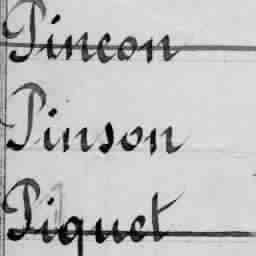 Pincon
Pinson
Piquet